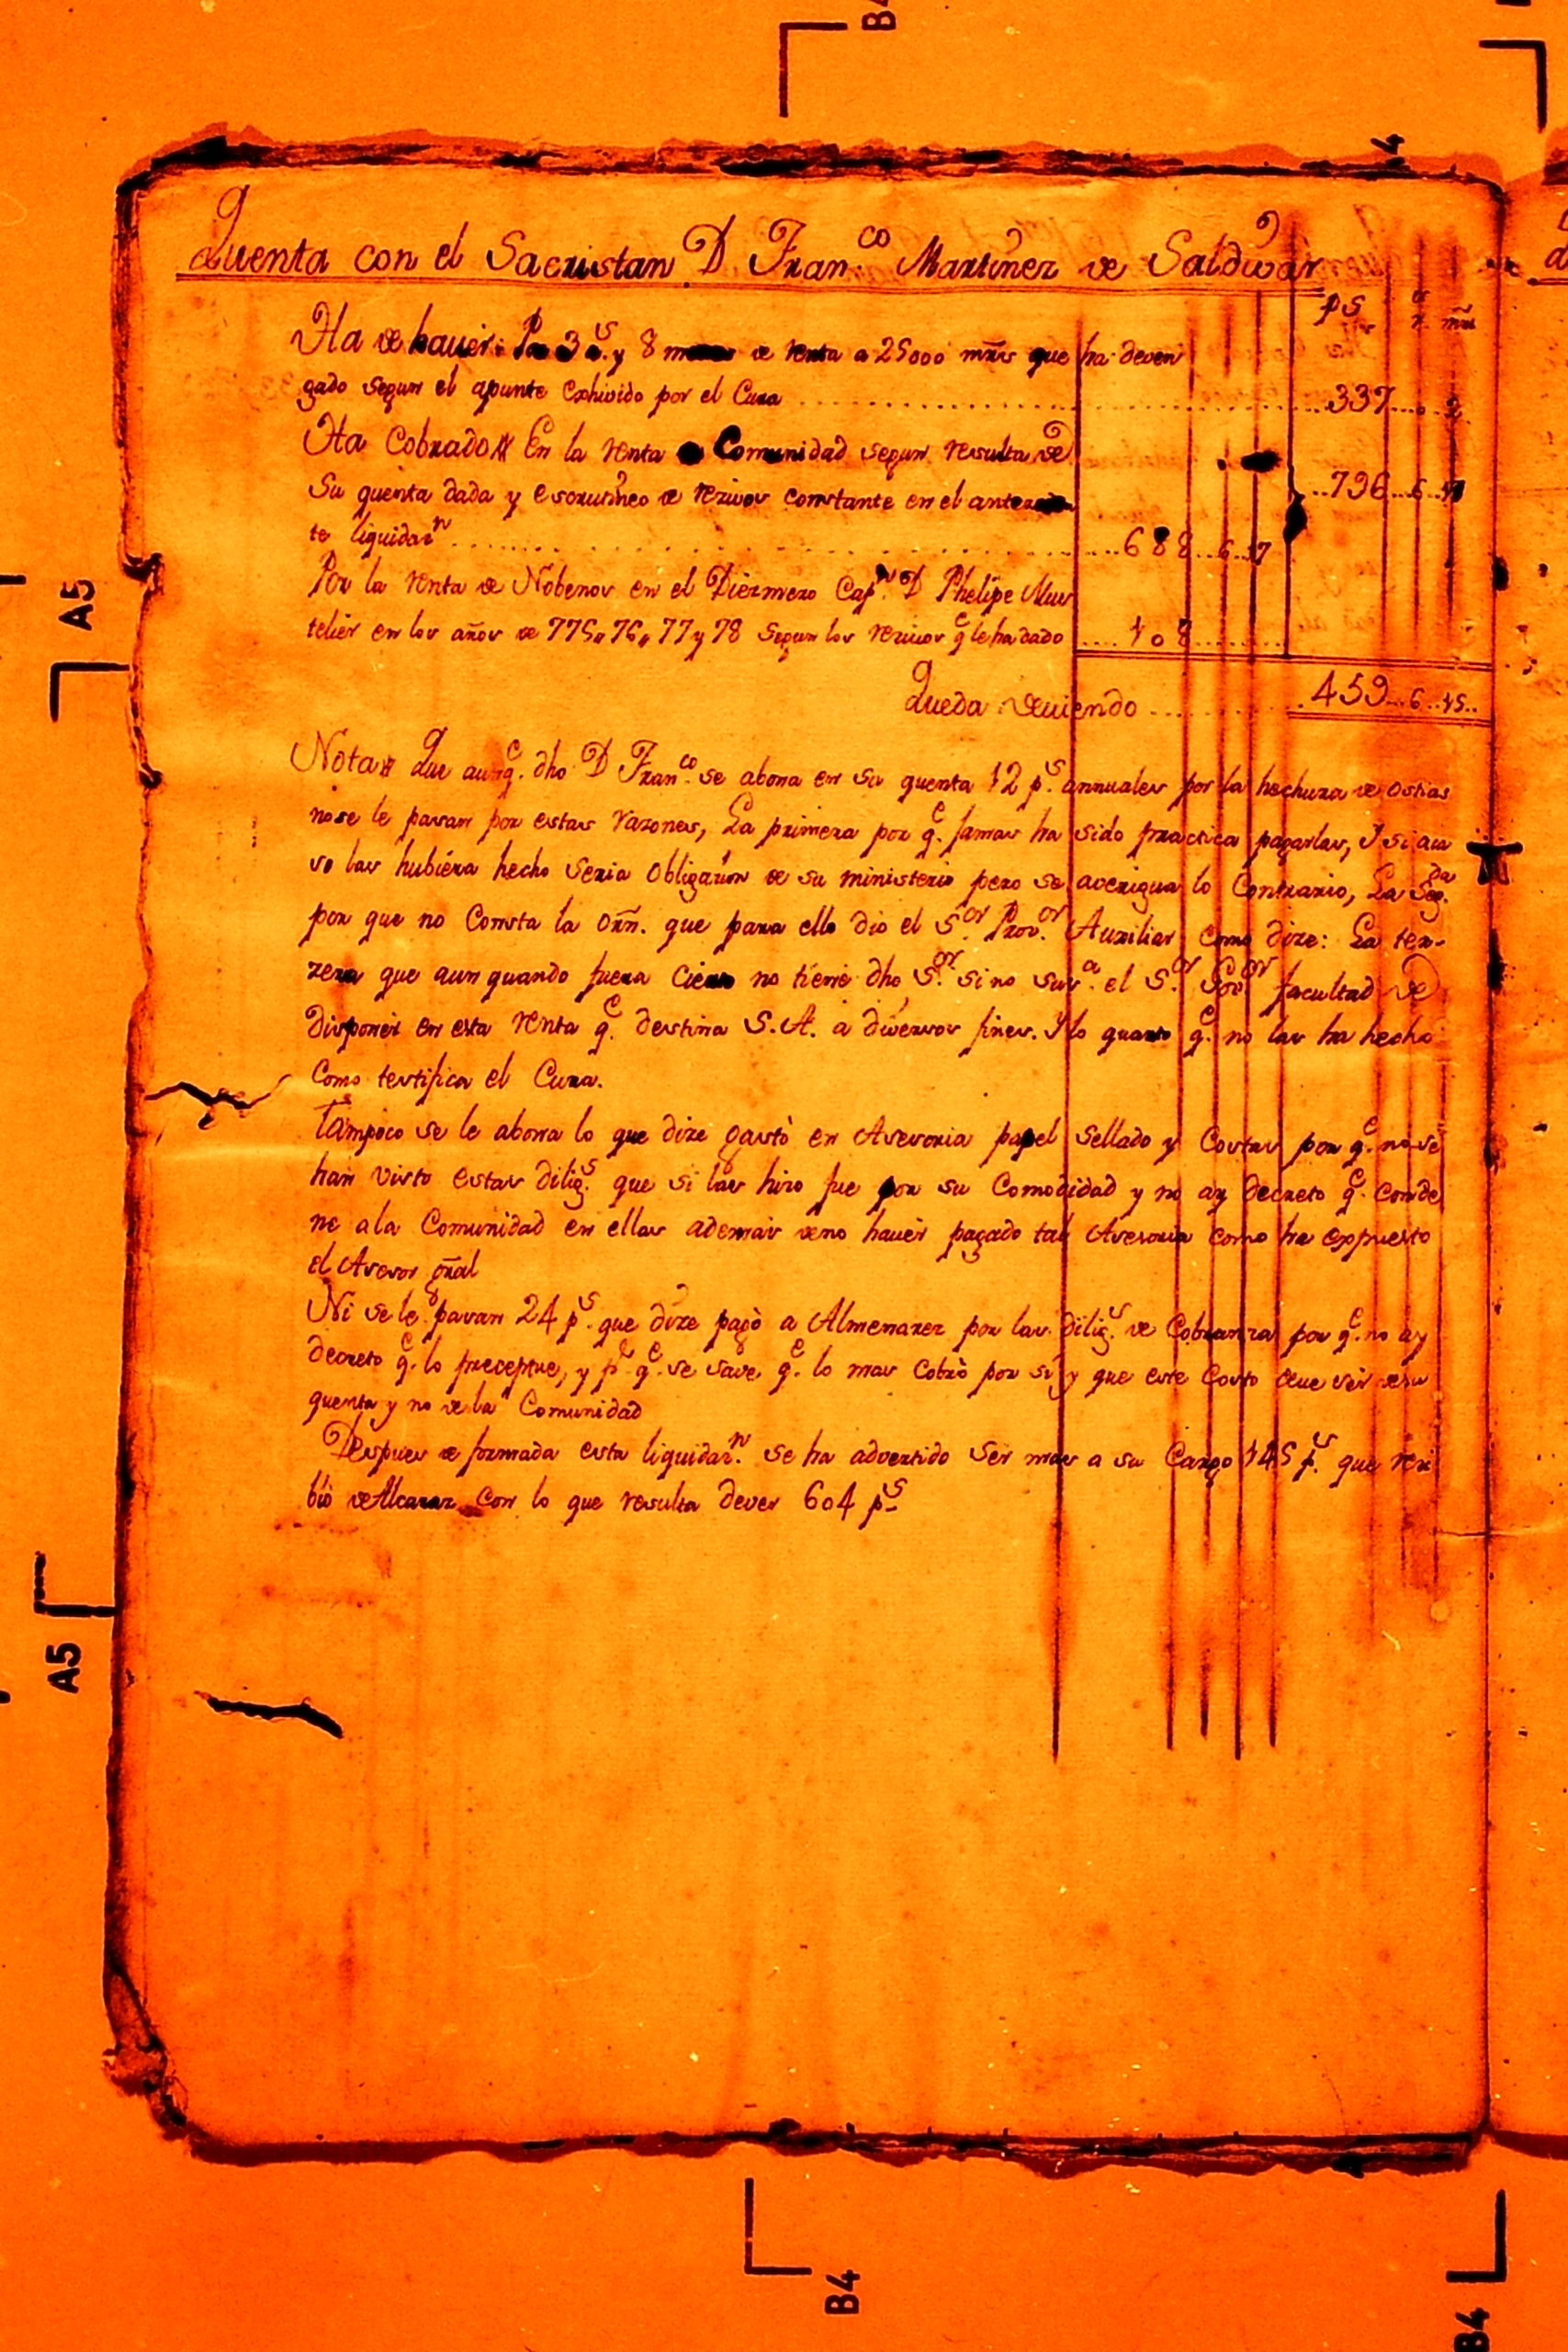 B4
4
Quenta con el Sacristan D Fran.co Martinez de Saldivar
ps r.s mrs
Ha de hauer: Por 3 a.s y 8 meses de renta a 25000 mrs que ha deven
gado segun el apunte exhivido por el Cura ........ 337..0..2
Ha Cobrado// En la renta de Comunidad segun resulta de
Su quenta dada y escrutineo de rezivos constante en el anteceden ..796..6..17
te liquidaz.n ........ 688..6..17
Por la renta de Nobenos en el Diezmero Cap.n D Phelipe Mus
telier en los años de 775,, 76,, 77 y 78 segun los rezivos q.e le ha dado .... 108
Queda deviendo ........ 459..6..15..
Nota// Que aunq.e dho D Fran.co se abona en su quenta 12 p.s annuales por la hechura de ostias
no se le pasan por estas razones, La primera por q.e jamas ha sido practica pagarlas, Y si aca
so las hubiera hecho seria obligazion de su ministerio pero se averigua lo Contrario, La Seg.da
por que no Consta la orñ. que para ello dio el S.or Prov.or Auxiliar como dize: La ter-
zera que aun quando fuera Cierto no tiene dho S.or si no el S.or Gov.or facultad de
disponer en esta renta q.e destina S.A. a diversos fines. Y lo quarto q.e no las ha hecho
Como testifica el Cura.
Tampoco se le abona lo que dize gastò en Asesoria papel sellado y Costas por q.e no se
han visto estas dilig.s que si las hizo fue por su Comodidad y no ay decreto q.e conde
ne a la Comunidad en ellas ademas de no hauer pagado tal Asesoria como ha expuesto
el Asesor gñal
Ni se le pasan 24 p.s que dize pagò a Almenarez por las dilig.s de Cobranza por q.e no ay
decreto q.e lo preceptue, y p.r q.e se save q.e lo mas Cobrò por si y que este Costo deve ser de su
quenta y no de la Comunidad
Despues de formada esta liquidaz.n se ha advertido ser mas a su Cargo 145 p.s que rezi
bio de Alcaraz con lo que resulta dever 604 p.s
A5
A5
B4
B4